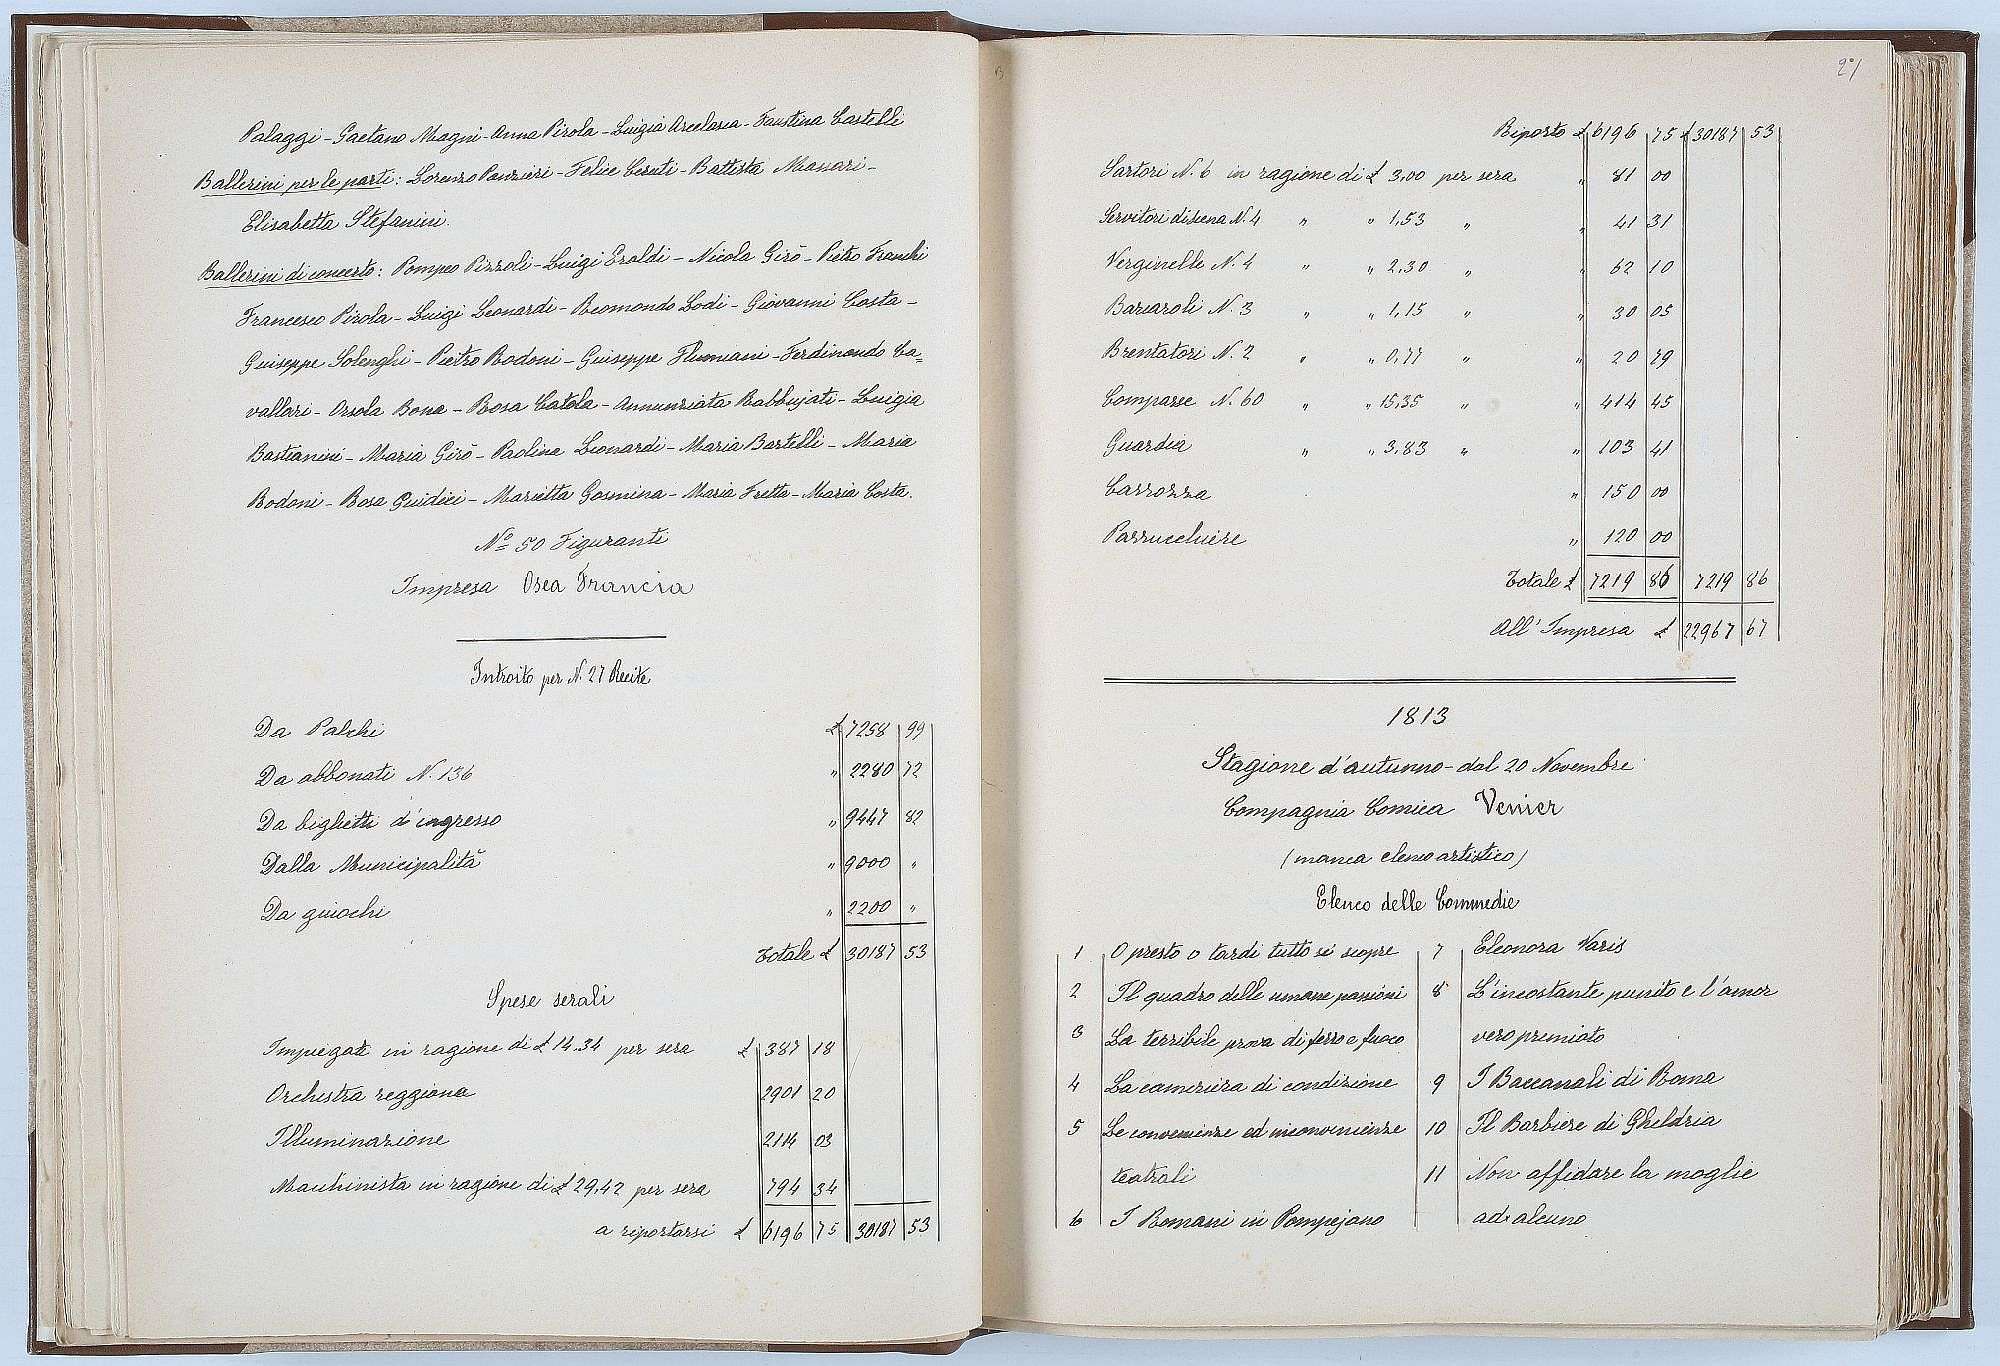 Palaggi - Gaetano Magni - Anna Pirola - Luigia Arcelasca - Faustina Castelli
Ballerini per le parti: Lorenzo Panzieri - Felice Ceruti - Battista Manari -
Elisabetta Stefanini.
Ballerini di concerto: Pompeo Pizzoli - Luigi Eraldi - Nicola Girò - Pietro Franchi
Francesco Pirola - Luigi Leonardi - Reomondo Lodi - Giovanni Costa -
Guiseppe Solenghi - Pietro Bodoni - Guiseppe Flumiani - Ferdinando Ca=
vallari - Orsola Bona - Rosa Catola - Annunziata Rabbujati - Luigia
Bastianini - Maria Girò - Paolina Leonardi - Maria Bartelli - Maria
Bodoni - Rosa Guidici - Marietta Gosmina - Maria Fretta - Maria Costa.
No 50 Figuranti
Impresa Osea Francia
Introito per N. 27 Recite
Da Palchi £ 7258 99
Da abbonati N. 136 " 2280 72
Da biglietti d'ingresso " 9447 82
Dalla Municipalità " 9000 "
Da giuochi " 2200 "
Totale £ 30187 53
Spese serali
Impiegati in ragione di £ 14.34 per sera £ 387 18
Orchestra reggiana 2901 20
Illuminazione 2114 03
Machinista in ragione di £ 29,42 per sera 794 34
a riportarsi £ 6196 75 30187 53
21
Riporto £ 6196 75 £ 30187 53
Sartori N. 6 in ragione di £ 3,00 per sera " 81 00
Servitori di scena N. 4 " " 1,53 " " 41 31
Verginelle N. 4 " " 2,30 " " 62 10
Barcaroli N. 3 " " 1,15 " " 30 05
Brentatori N. 2 " " 0,77 " " 20 79
Comparse N. 60 " " 15,35 " " 414 45
Guardia " " 3,83 " " 103 41
Carrozza " 150 00
Parrucchiere " 120 00
Totale £ 7219 86 7219 86
All' Impresa £ 22967 67
1813
Stagione d'autunno - dal 20 Novembre
Compagnia Comica Venier
(manca elenco artistico)
Elenco delle Commedie
1 O presto o tardi tutto si scopre
2 Il quadro delle umane passioni
3 La terribile prova di ferro e fuoco
4 La cameriera di condizione
5 Le convenienze ed inconvenienze
teatrali
6 I Romani in Pompejano
7 Eleonora Varis
8 L'incostante punito e l'amor
vero premiato
9 I Baccanali di Roma
10 Il Barbiere di Gheldria
11 Non affidare la moglie
ad alcuno